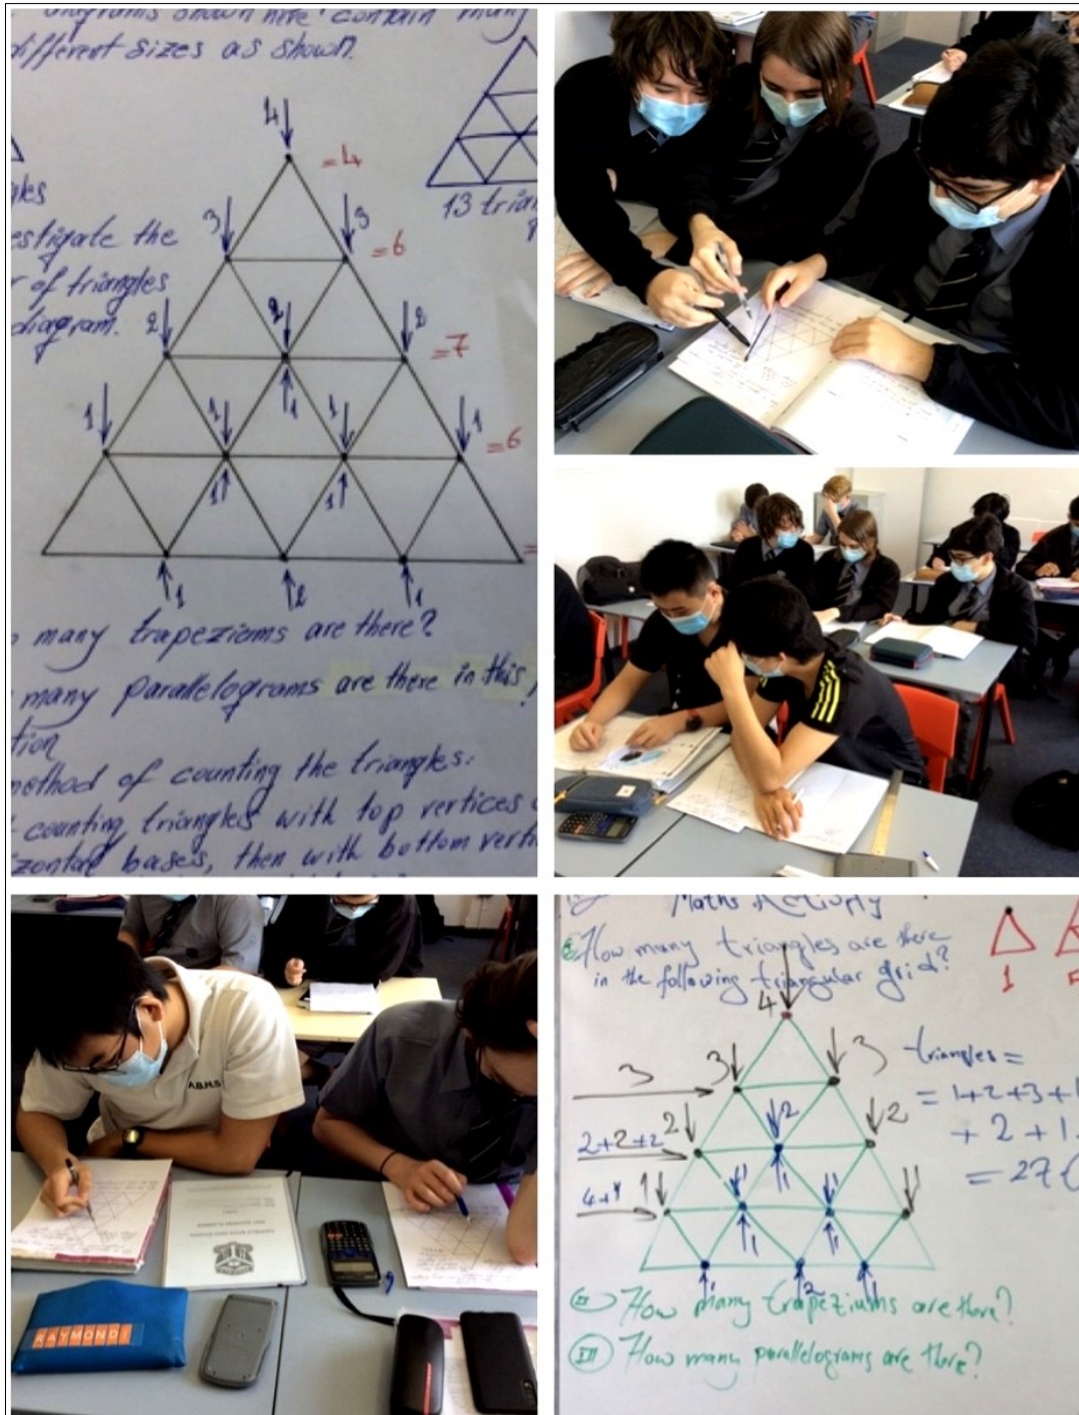 diagrams shown here contain many
different sizes as shown.
4
= 4
3
3
= 6
13
estigate the
of triangles
diagram.
2
2
2
= 7
1
1
1
1
1
= 6
1
1
=
1
2
1
many trapeziems are there?
many parallelograms are there in this
tion
method of counting the triangles:
counting triangles with top vertices
zontal bases, then with bottom
A.B.H.S
RAYMOND
Maths Activity
How many triangles are there
in the following triangular grid?
1
4
3
3
3
triangles =
= 1+2+3+
+ 2 + 1
= 27
2+2+2
2
2
2
1
4+4
1
1
1
1
1
1
2
1
II How many trapeziums are there?
III How many parallelograms are there?